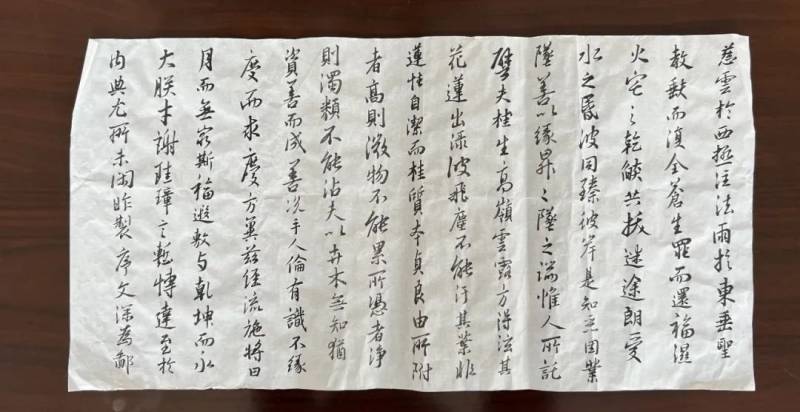 慈雲於西極注法雨於東垂聖
教缺而復全蒼生罪而還福濕
火宅之乾燄共拔迷途朗愛
水之昏波同臻彼岸是知惡因業
墜善以緣昇〻墜之端惟人所託
譬夫桂生高嶺雲露方得泫其
花蓮出淥波飛塵不能汙其葉非
蓮性自潔而桂質本貞良由所附
者高則微物不能累所憑者淨
則濁類不能沾夫以卉木無知猶
資善而成善況乎人倫有識不緣
慶而求慶方冀茲經流施將日
月而無窮斯福遐敷与乾坤而永
大朕才謝珪璋言慙博達至於
內典尤所未閑昨製序文深為鄙